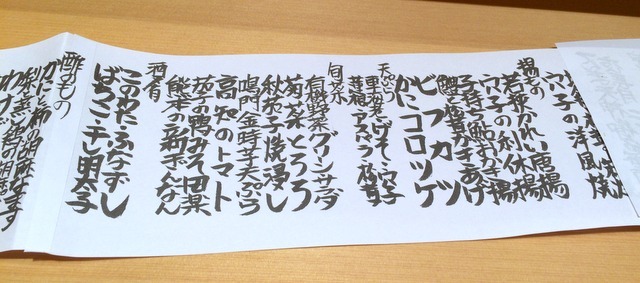 穴子の洋風焼
揚もの
若狭かれい唐揚
穴子の利休揚
子持ち鮎おかき揚
鱧と かきあげ
ビフカツ
かにコロッケ
天ぷら
車海老 げそ 穴子
蓮根 アスパラ 松茸
旬菜
有機野菜グリーンサラダ
菊菜とろろ
秋茄子焼浸し
鳴門金時芋天ぷら
高知のトマト
茄子の鴨みそ田楽
熊本の新ぎんなん
酒肴
このわた・ふなずし
ばちこ・干し明太子
酢もの
かにと柿の胡麻